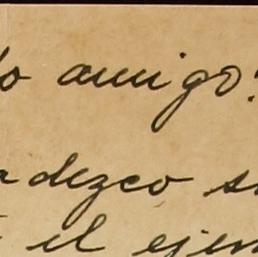 do amigo:
adezco su
el ejem